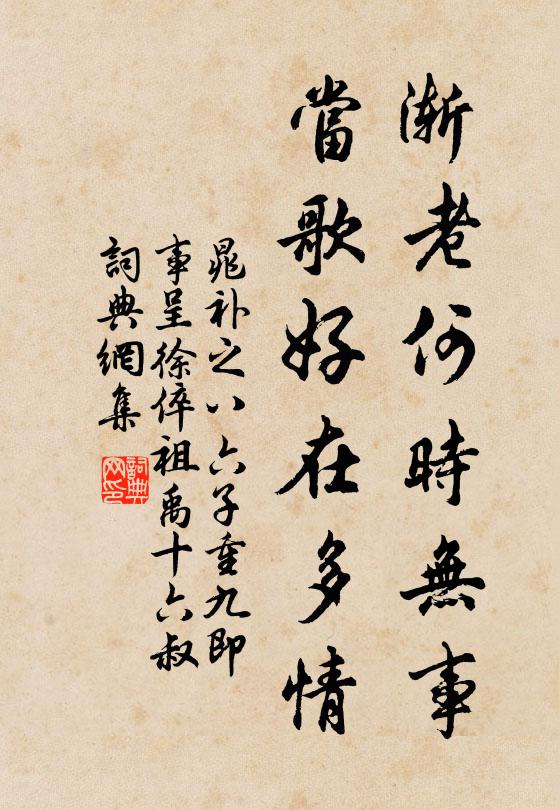 漸老何時無事
當歌好在多情
晁补之八六子重九即
事呈徐倅祖禹十六叔
詞典網集
詞典网印